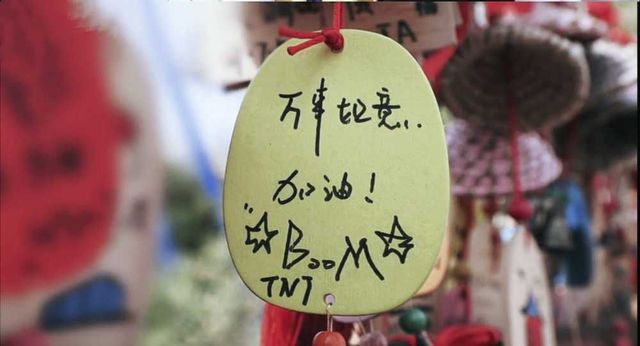 万事如意...
加油!
☆BooM☆
TNT